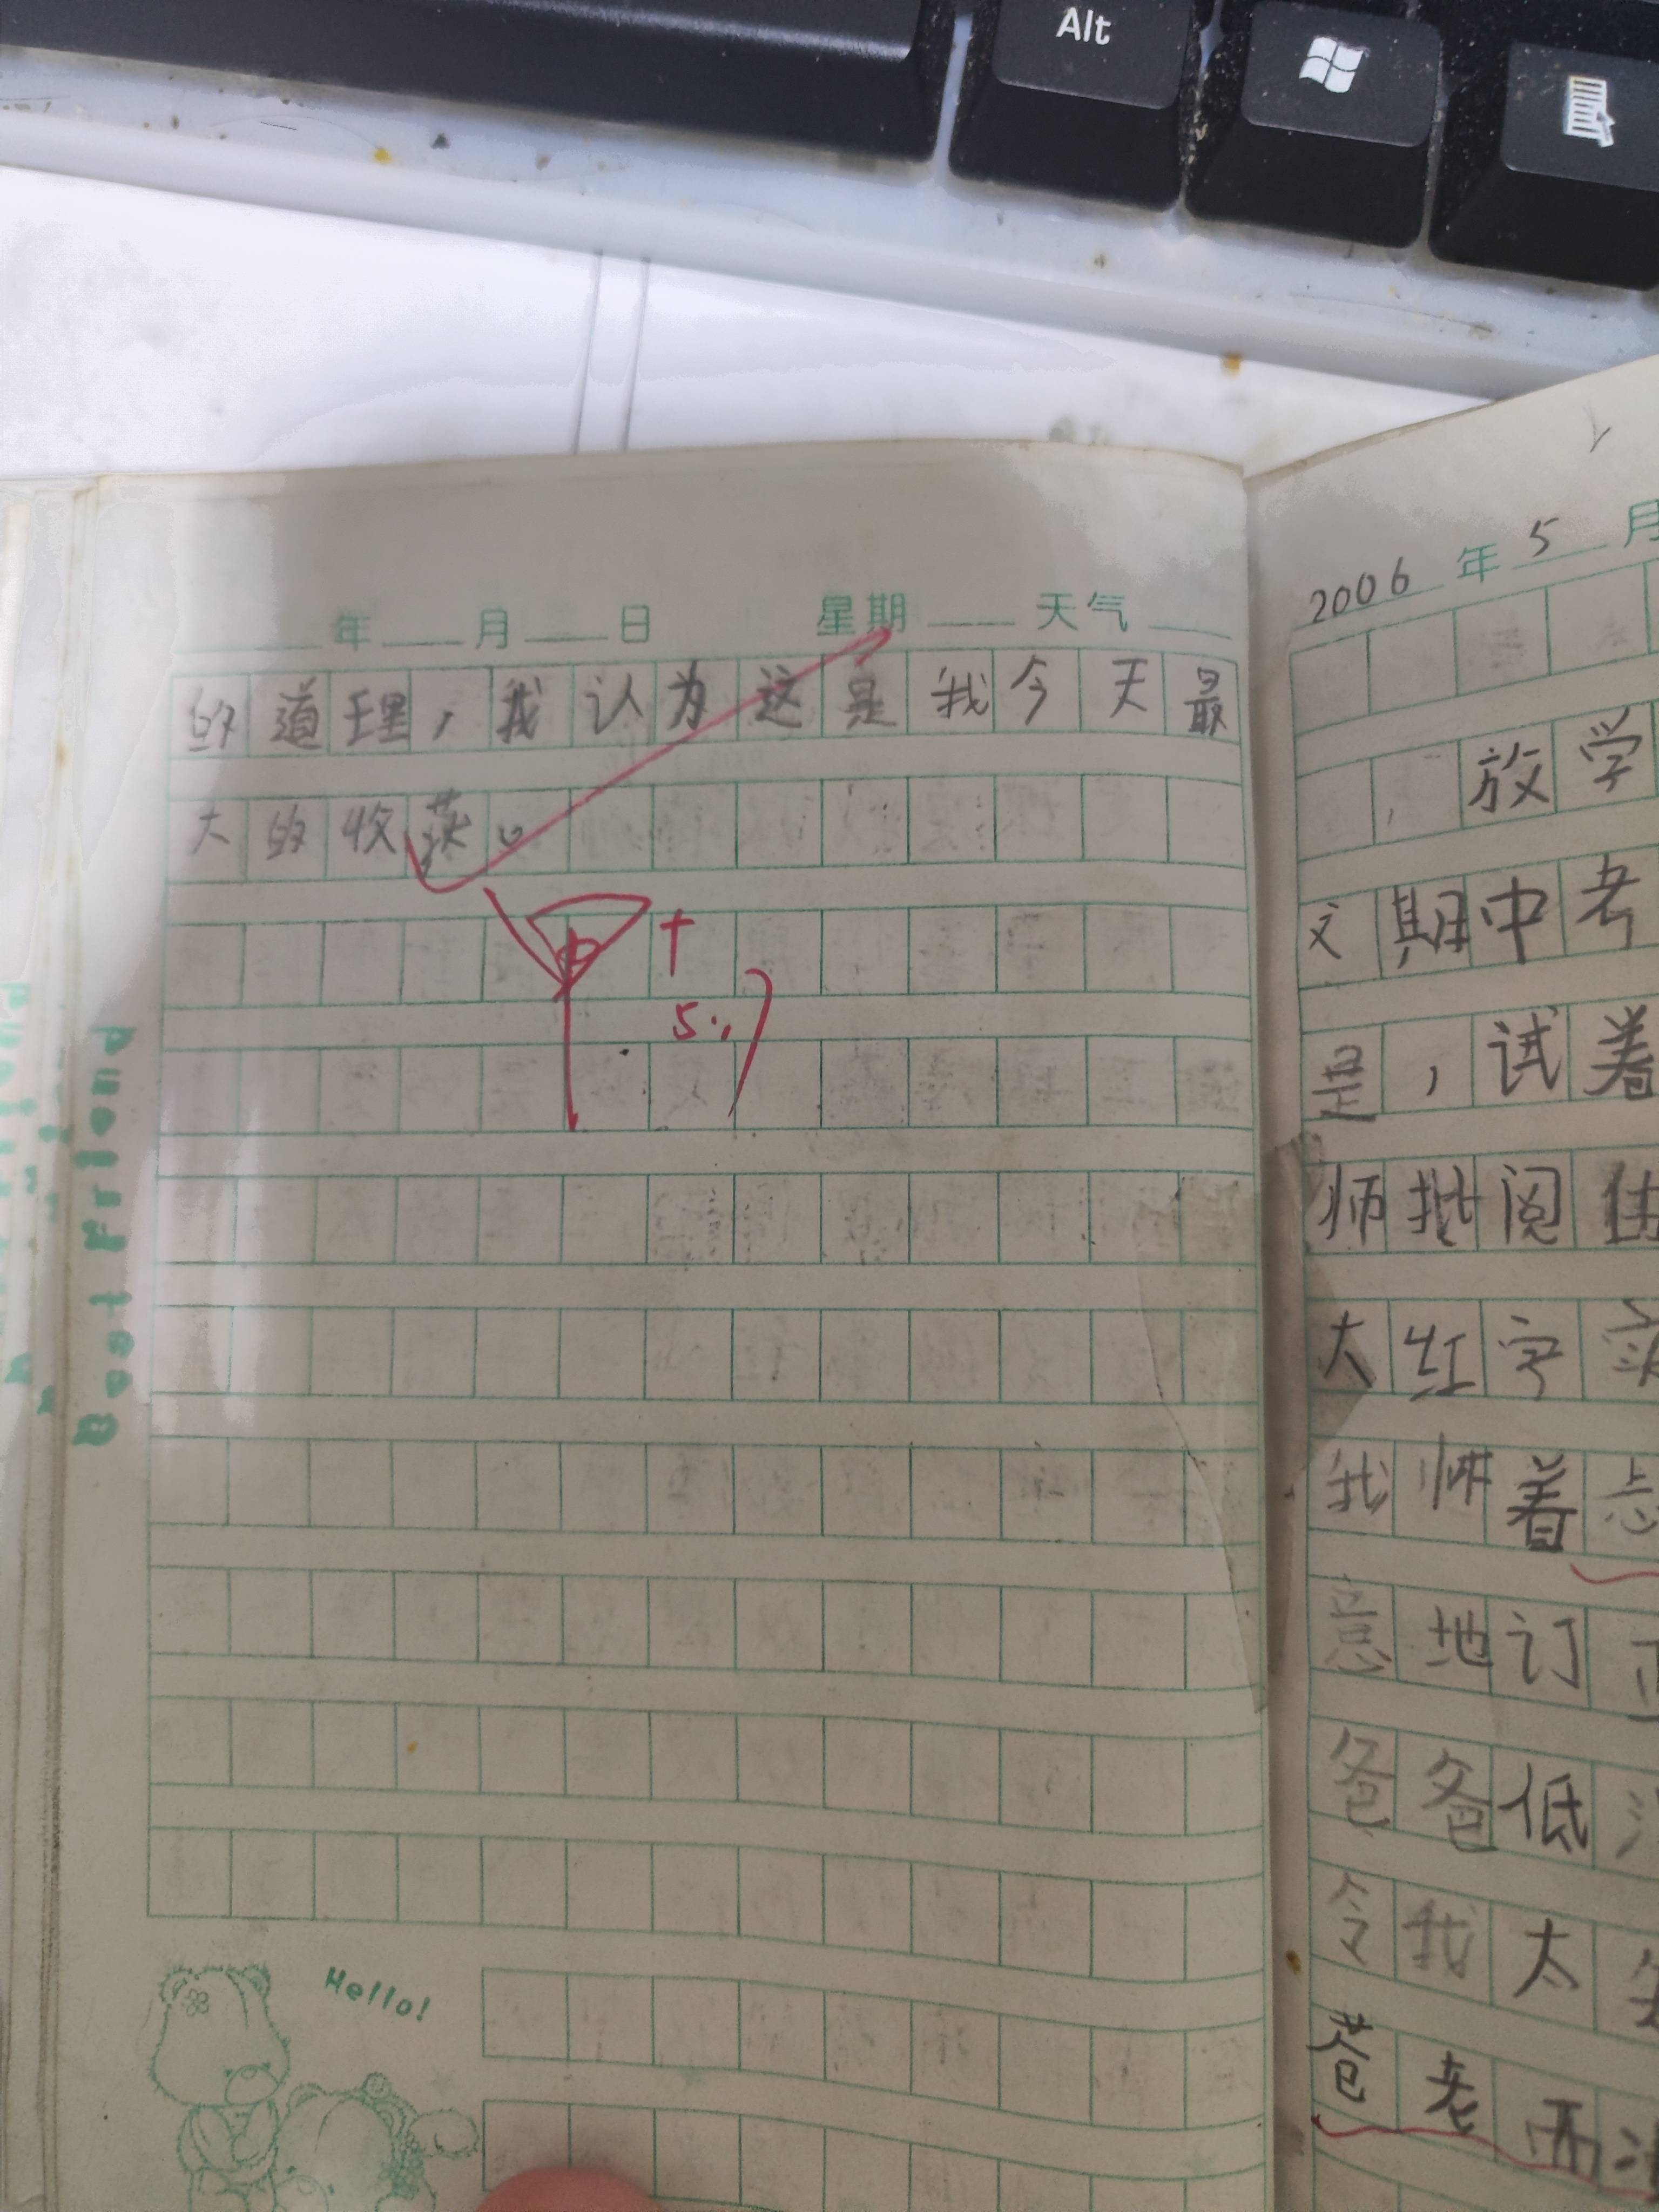 Alt
年 月 日 星期 天气
的道理，我认为这是我今天最
大的收获。
5.17
Best Friend
Hello!
2006 年 5 月
放学
文期中考
是，试着
师批阅
大红字
我怀着
意地订正
爸爸低
令我太
苍老而